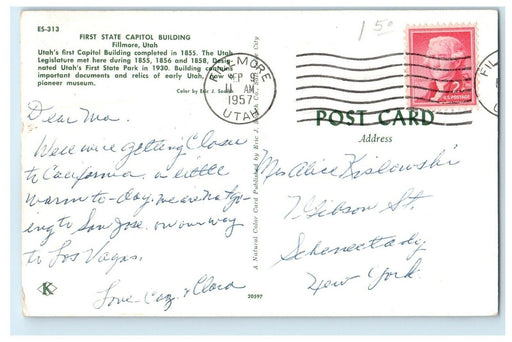 ES-313
FIRST STATE CAPITOL BUILDING
Fillmore, Utah
Utah's first Capitol Building completed in 1855. The Utah
Legislature met here during 1855, 1856 and 1858. Desig-
nated Utah's First State Park in 1930. Building contains
important documents and relics of early Utah, now a
pioneer museum.
Color by Eric J.
1 50
FILLMORE
SEP 9
11 AM
1957
UTAH
FIL
2¢
U.S. POSTAGE
POST CARD
Address
Dear Ma.
Well we're getting closer
to California. a little
warm to-day. we are not go-
ing to San Jose. on our way
to Los Vagas.
Love - Caz. & Clara
Mrs Alice Kislowski
7 Gibson St.
Schenectady
New York.
A Natural Color Card Published by Eric J.
K
20597